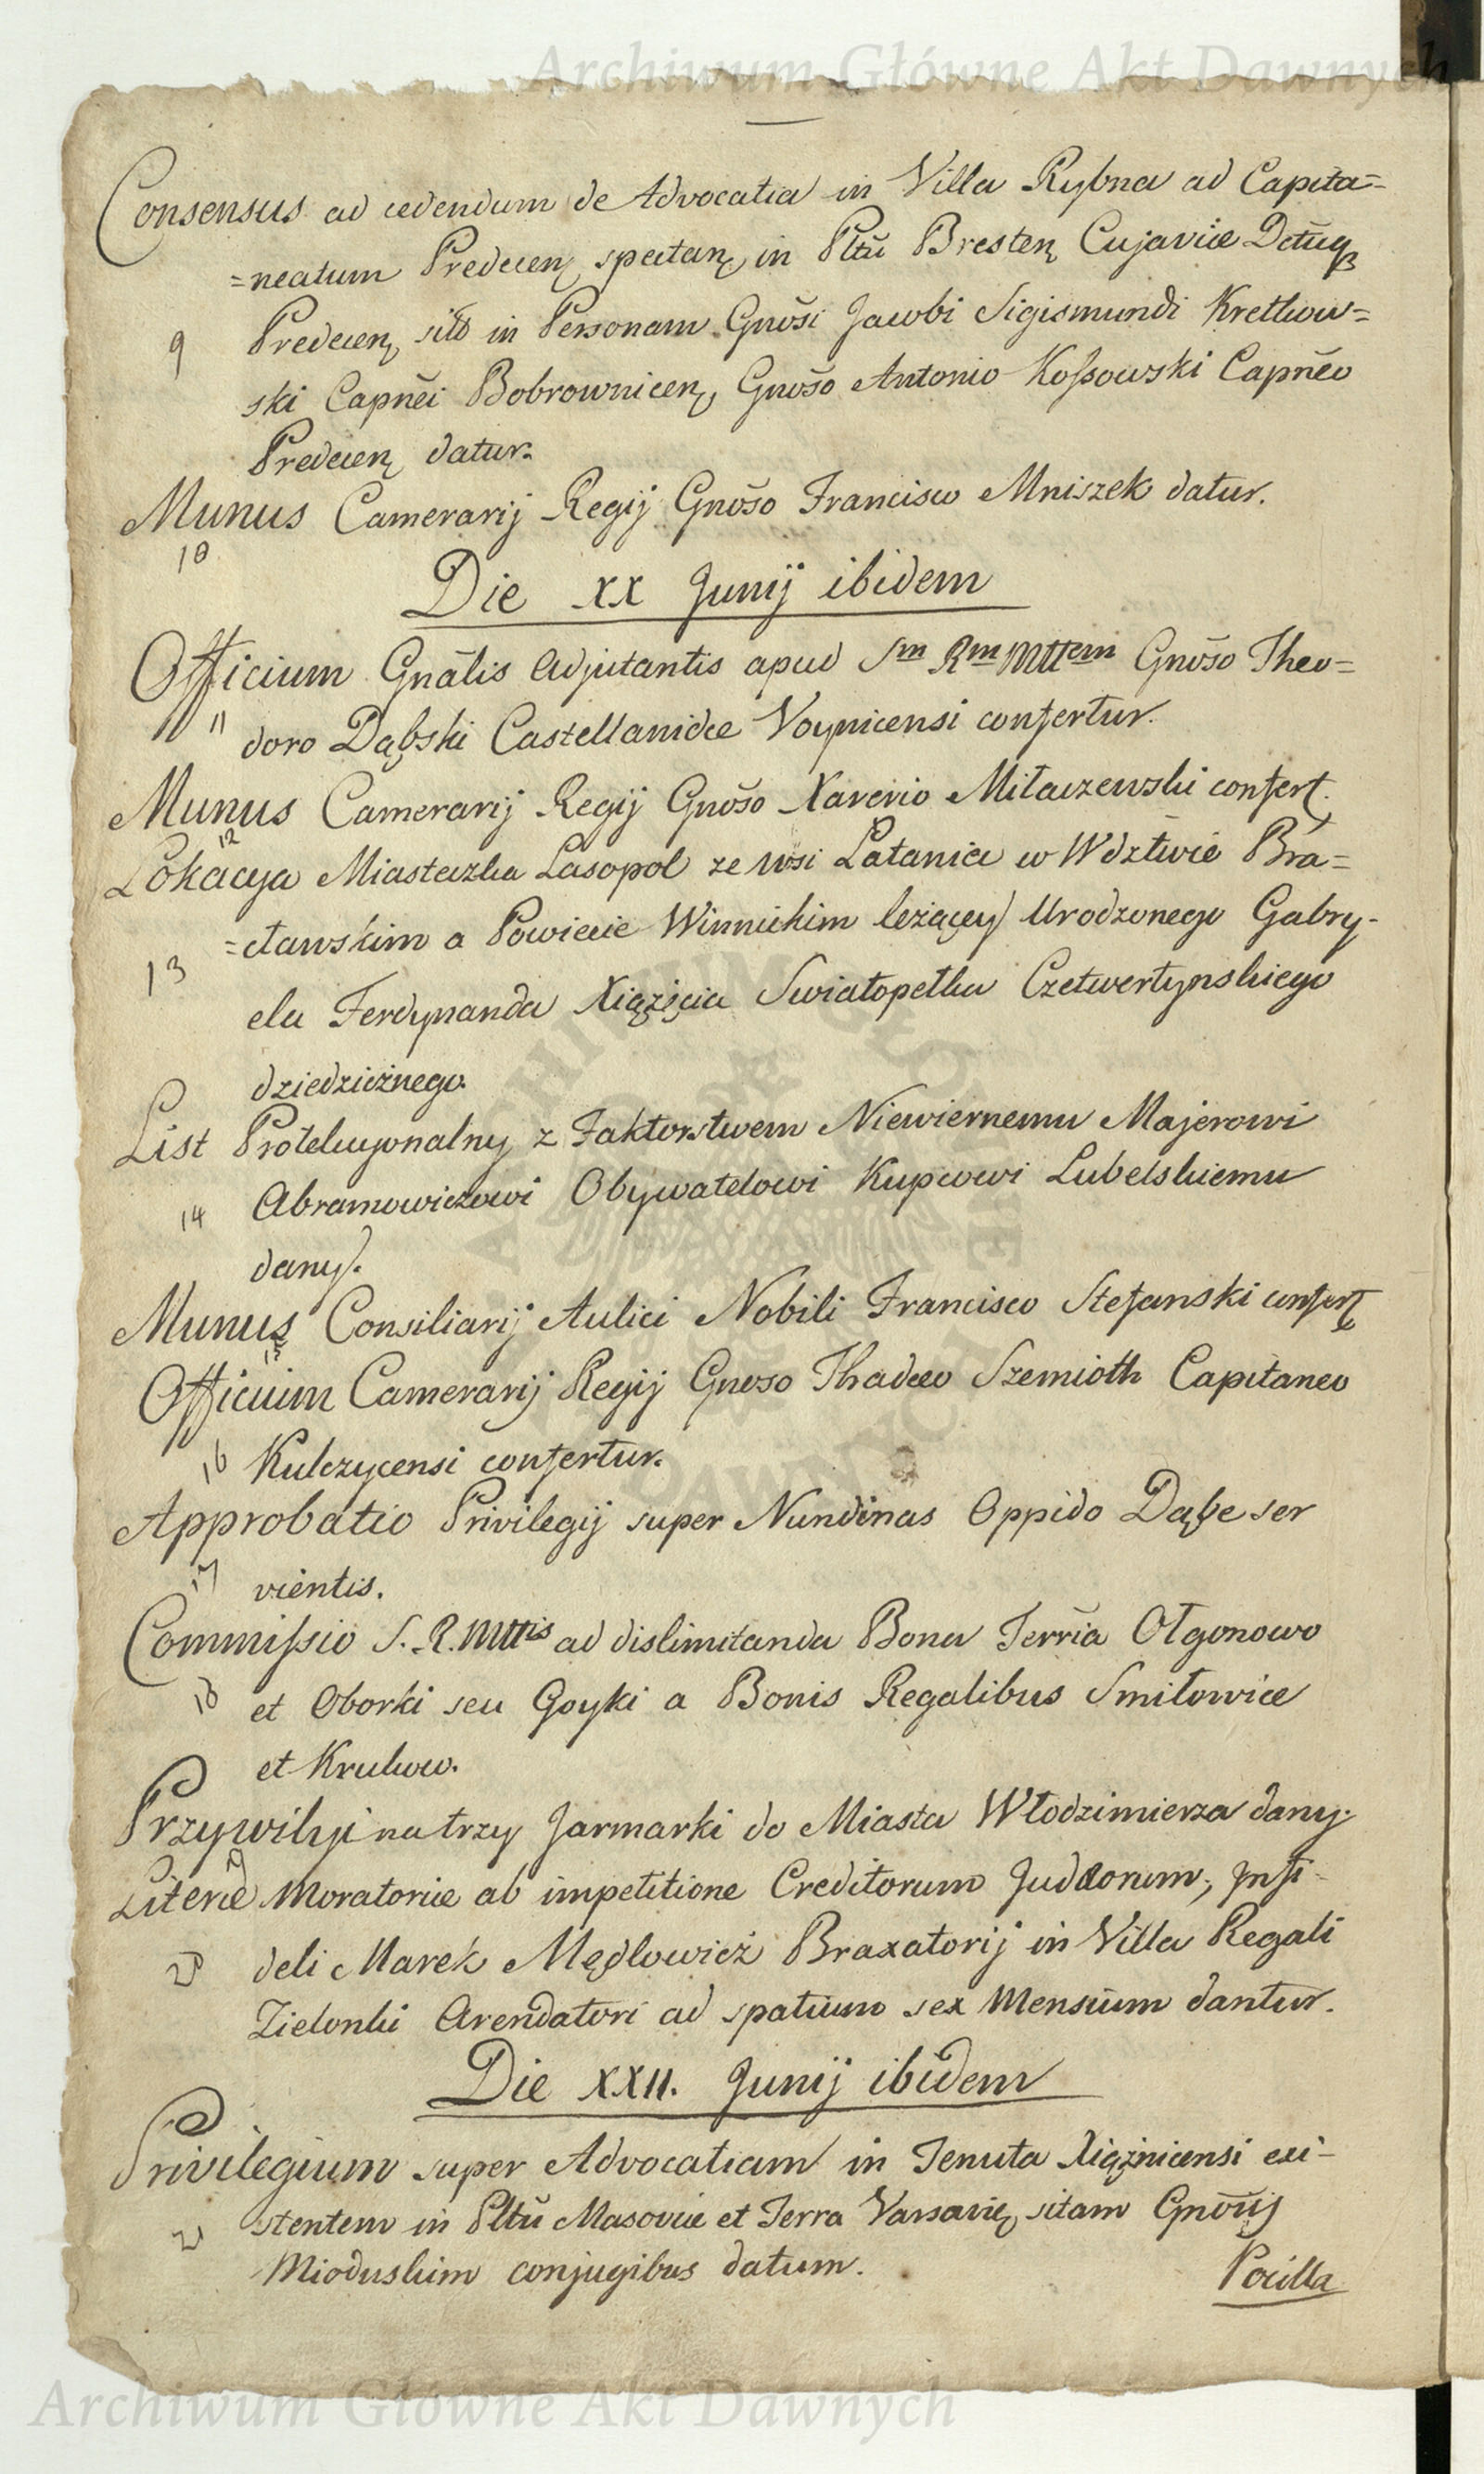 Archiwum Główne Akt Dawnych
Consensus ad cedendum de Advocatia in Villa Rybna ad Capita=
=neatum Predecen spectan in Pltũ Bresten Cujaviæ Dctũq
9 Predecen sitõ in Personam Gnõsi Jacobi Sigismundi Kretkow=
ski Capnẽi Bobrownicen, Gnõso Antonio Kossowski Capnẽo
Predecen datur.
Munus Camerarij Regij Gnõso Francisco Mniszek datur.
10
Die XX Junij ibidem
Officium Gnãlis Adjutantis apud Sm Rm Mttem Gnõso Theo=
11 doro Dąbski Castellanidæ Voynicensi confertur.
Munus Camerarij Regij Gnõso Xaverio Miłaczewski confert.
12
Lokacya Miasteczka Lasopol ze wsi Latanice w Wdztwie Bra=
=cławskim a Powiecie Winnickim leżącey Urodzonego Gabry-
13
ela Ferdynanda Xiążęcia Swiatopełka Czetwertynskiego
dziedzicznego.
List Protekcyonalny z Faktorstwem Niewiernemu Majerowi
14 Abramowiczowi Obywatelowi Kupcowi Lubelskiemu
dany.
Munus Consiliarij Aulici Nobili Francisco Stefanski confert
15
Officium Camerarij Regij Gnoso Thadeo Szemioth Capitaneo
16 Kulczycensi confertur.
Approbatio Privilegij super Nundinas Oppido Dąbe ser
17 vientis.
Commissio S. R. Mttis ad dislimitanda Bona Terrĩa Ołgonowo
18 et Oborki seu Goyki a Bonis Regalibus Smiłowice
et Krukow.
Przywiley na trzy Jarmarki do Miasta Włodzimierza dany.
19
Literæ Moratoriæ ab impetitione Creditorum Judæorum, Infi-
20 deli Marek Mędlowicz Braxatorij in Villa Regali
Zielonki Arendatori ad spatium sex Mensium dantur.
Die XXII. Junij ibidem
Privilegium super Advocatiam in Tenuta Xiążnicensi exi-
21 stentem in Pltũ Masoviæ et Terra Varsavię, sitam Gnõsij
Mioduskim conjugibus datum.
Pocilla
Archiwum Główne Akt Dawnych